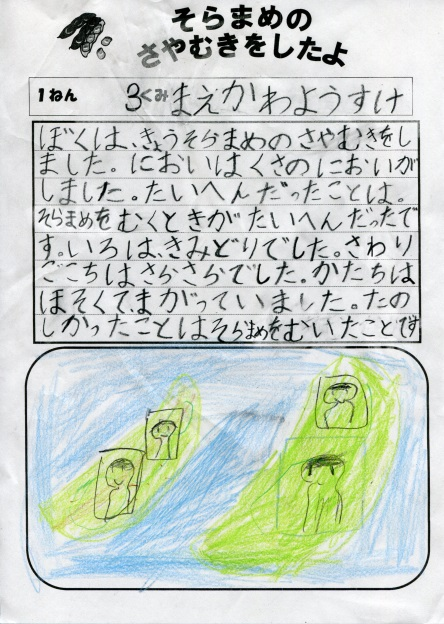 そらまめの
さやむきをしたよ
1ねん 3くみ まえかわようすけ
ぼくは、きょうそらまめのさやむきをし
ました。においはくさのにおいが
しました。たいへんだったことは。
そらまめをむくときがたいへんだったで
す。いろは、きみどりでした。さわり
ごこちはさらさらでした。かたちは
ほそくてまがっていました。たの
しかったことはそらまめをむいたことです